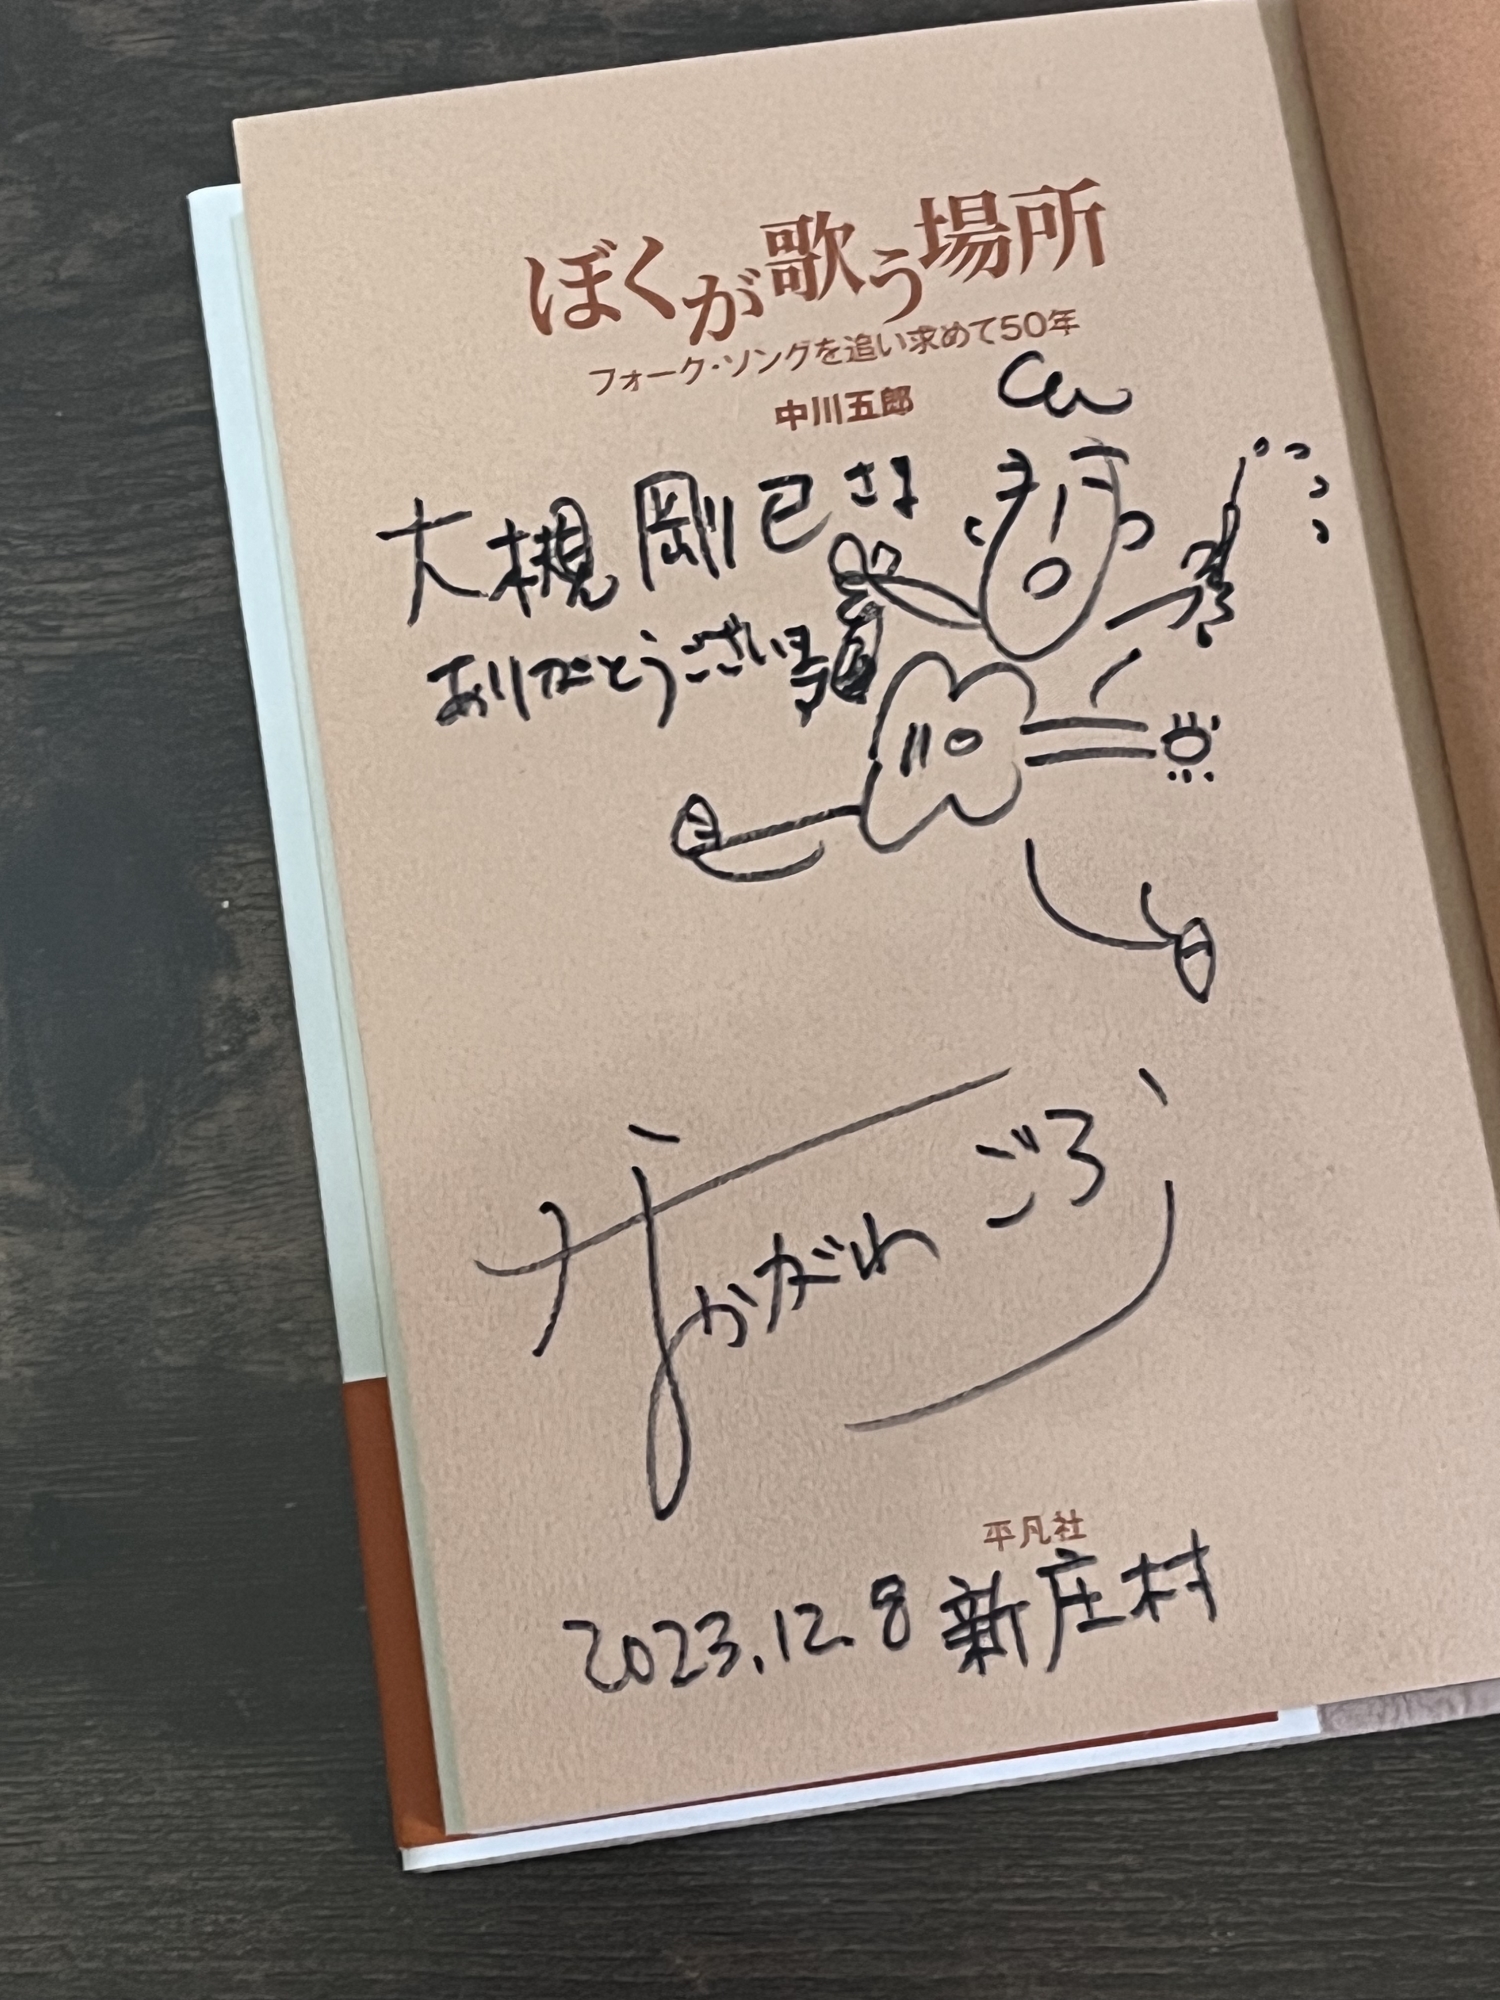 ぼくが歌う場所
フォーク・ソングを追い求めて50年
中川五郎
大槻 剛己さま
ありがとうございます
なかがわ ごろう
平凡社
2023.12.8 新庄村